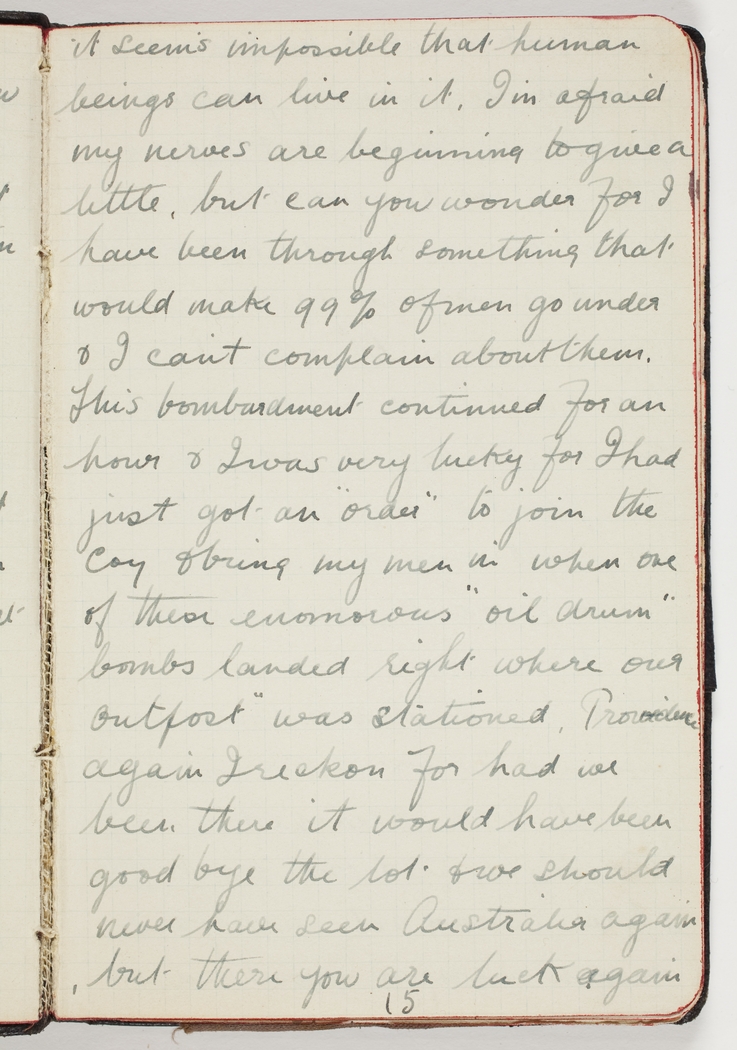 it seems impossible that human
beings can live in it, I'm afraid
my nerves are beginning to give a
little, but can you wonder for I
have been through something that
would make 99% of men go under
& I can't complain about them.
This bombardment continued for an
hour & I was very lucky for I had
just got an "order" to join the
Coy & bring my men in when one
of these enomorous "oil drum"
bombs landed right where our
outpost" was stationed, Providence
again I reckon for had we
been there it would have been
good bye the lot & we should
never have seen Australia again
, but there you are luck again
15